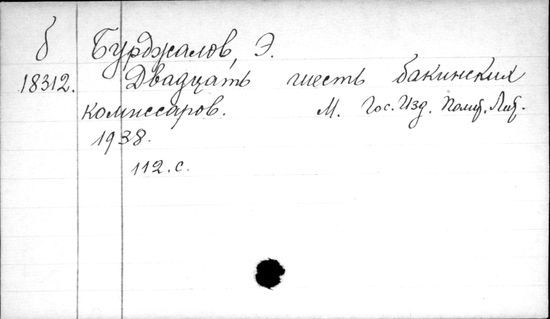 б Бурджалов, Э.
18312. Двадцать шесть бакинских
комиссаров. М. Гос. Изд. Полит. Лит.
1938.
112.с.